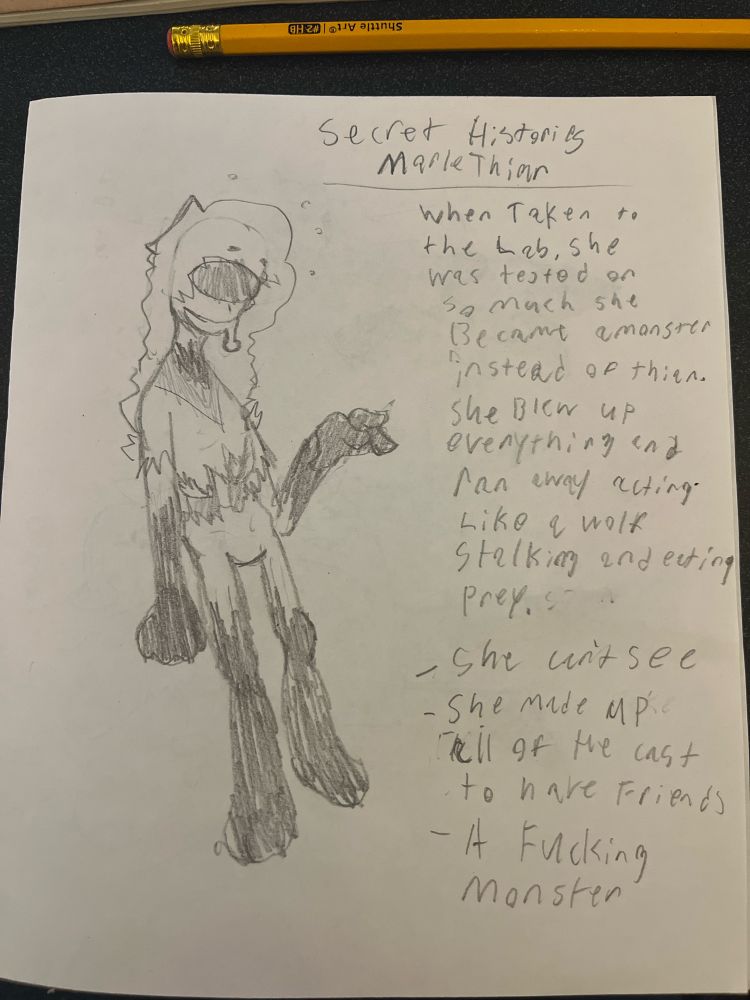 Shuttle Art® | #2 HB
Secret Histories
Marle Thian
When Taken to
the Lab, she
was tested on
so much she
Became a monster
instead of thian.
she Blew up
everything and
ran away acting
Like a wolf
stalking and eating
prey.
- She can't see
- She made up
all of the cast
to have Friends
- A Fucking
Monster